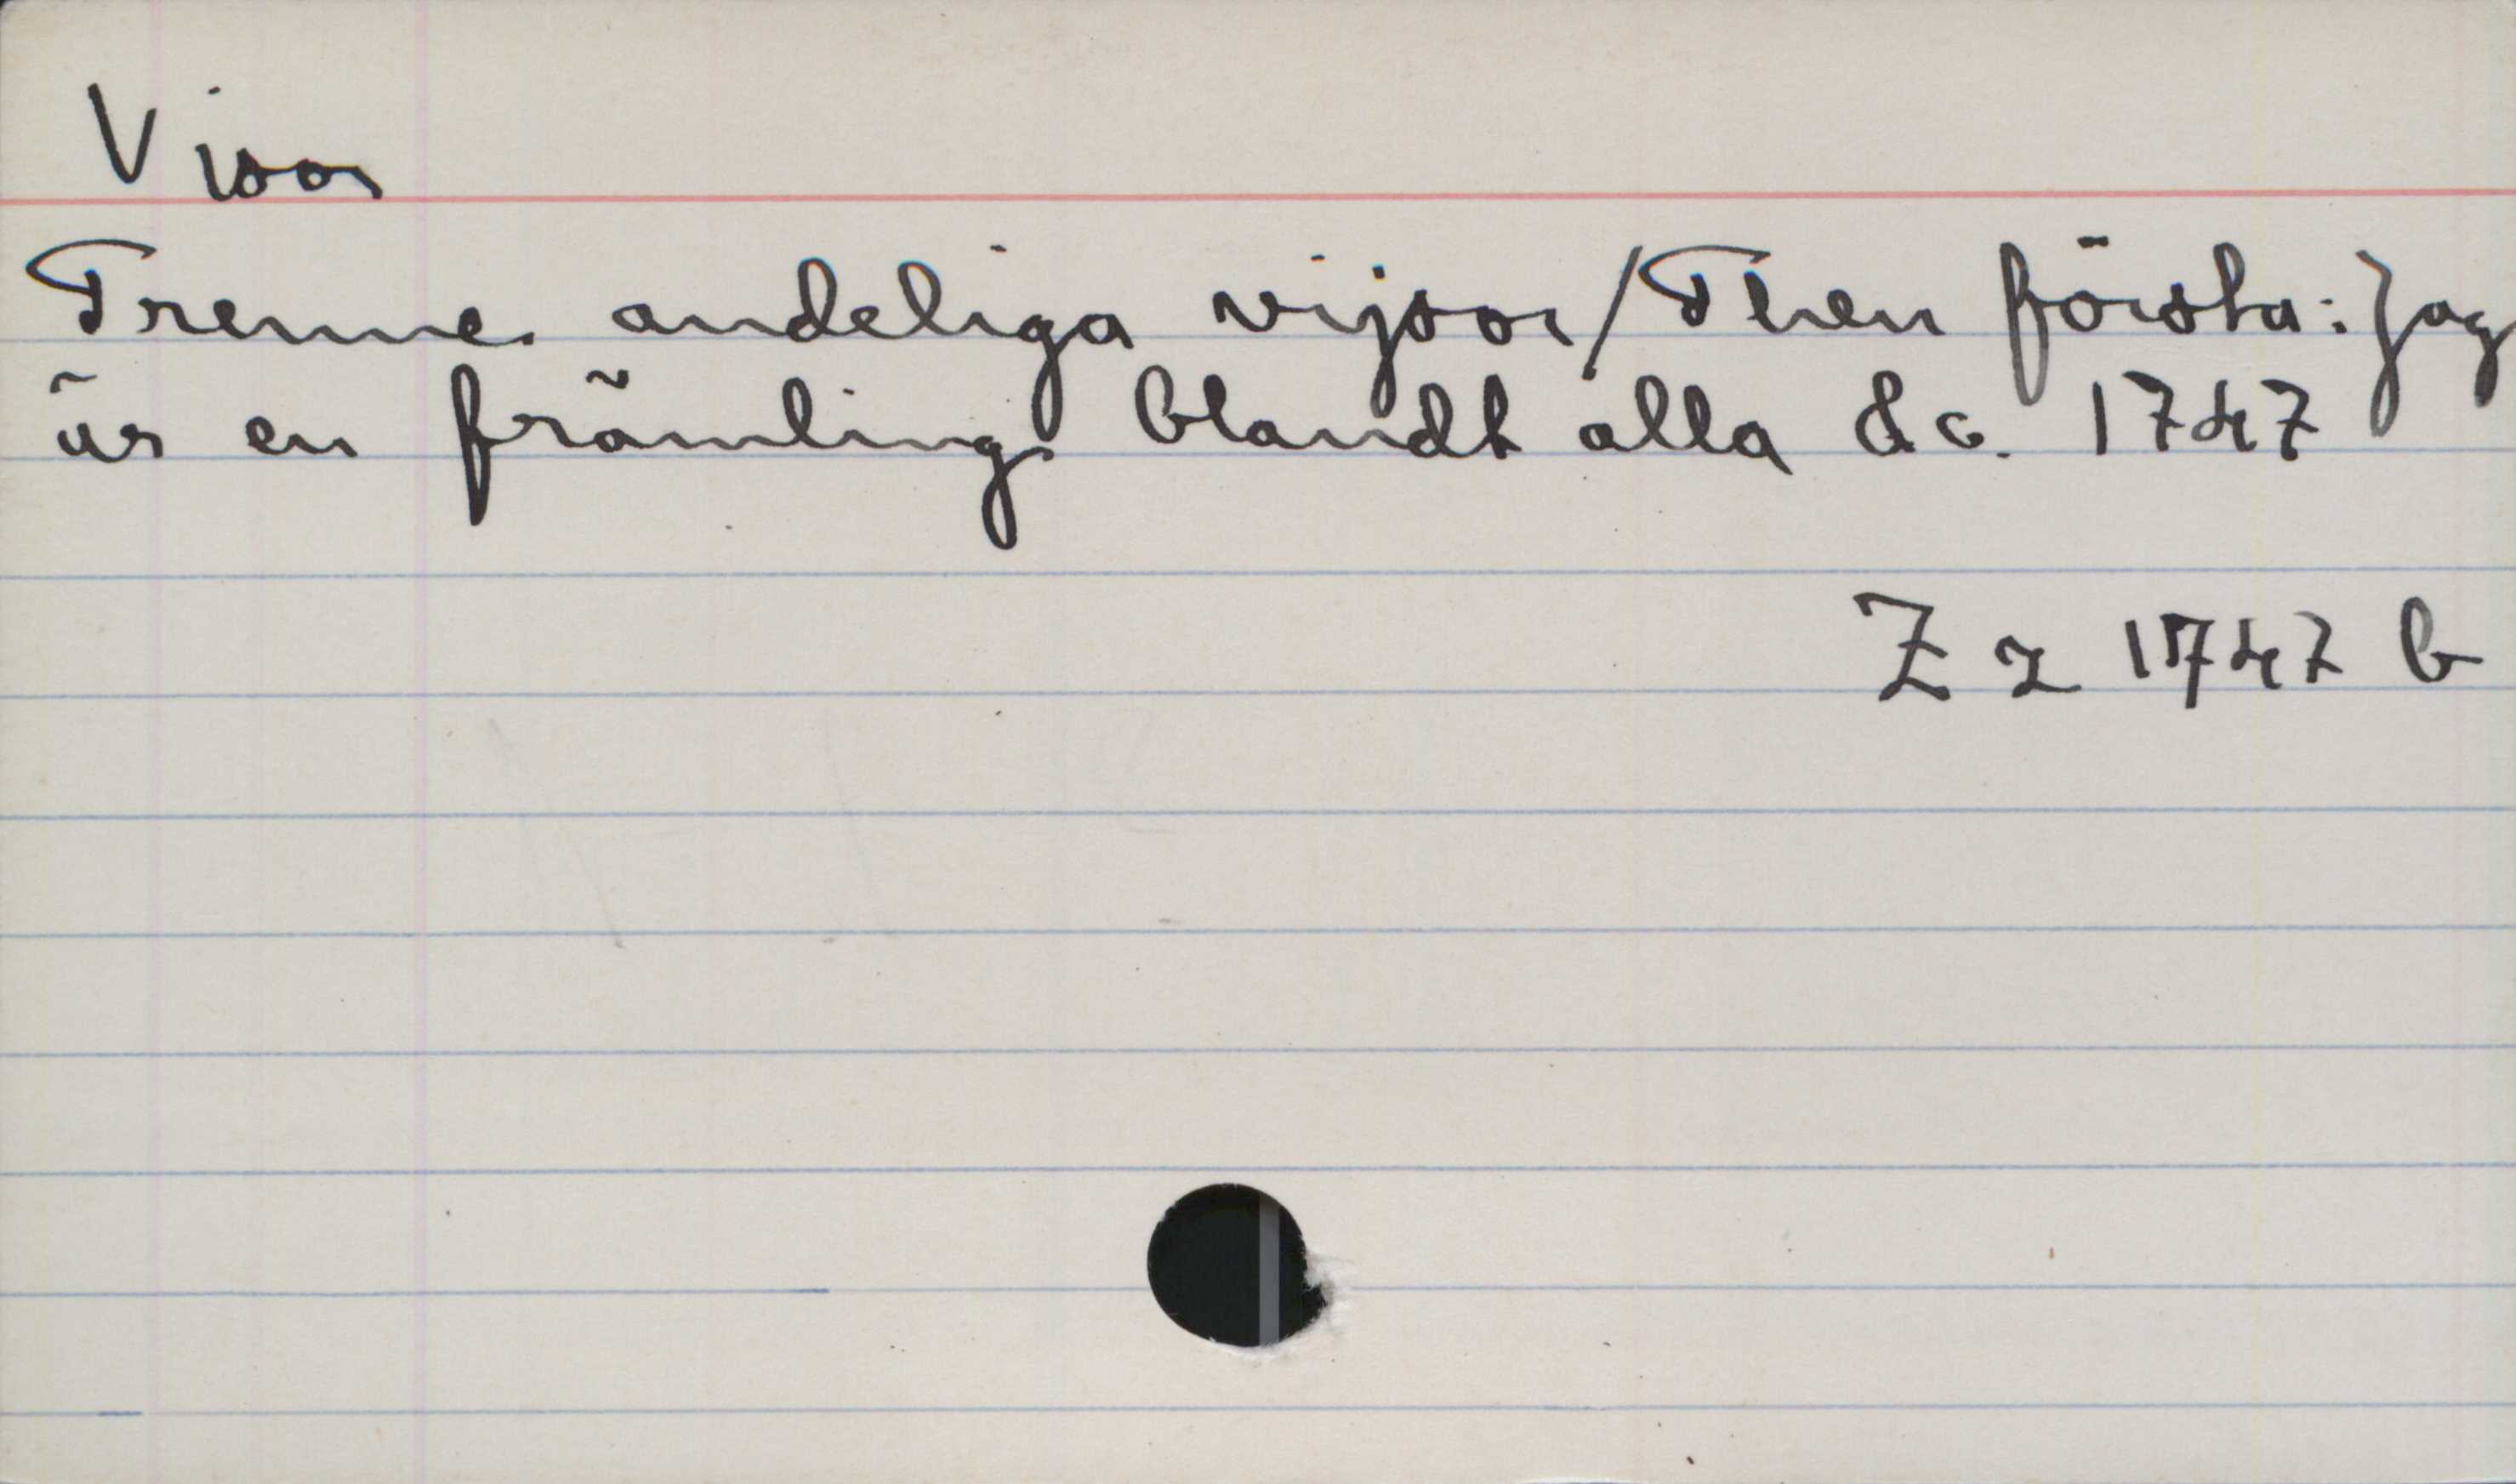 Visor
Trenne andeliga vijsor/Then första: Jag
är en främling blandt alla &c. 1747
Z z 1747 b